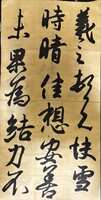 羲之頓首快雪
時晴佳想安善
未果為結力不